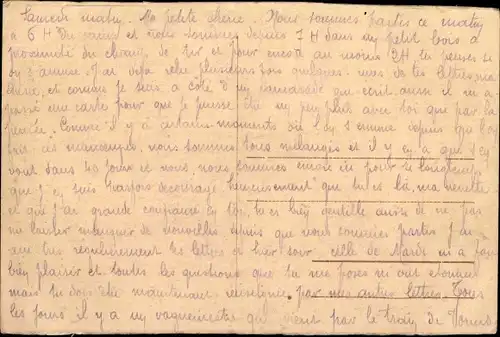 Samedi matin. Ma petite chérie. Nous sommes partis ce matin
à 6 H du camp et nous sommes depuis 7 H dans un petit bois à
proximité du champ de tir et pour encore au moins 2H tu penses si
on s'amuse j'ai déjà relu plusieurs fois quelques unes de tes lettres ma
chérie, et comme je suis à côté d'un camarade qui écrit aussi il m'a
passé une carte pour que je puisse être un peu plus avec toi que par la
pensée. Comme il y a certains moments où l'on s'ennuie depuis que l'on
fait ces manœuvres, nous sommes tous mélangés et il y en a que s'en
vont dans 40 jours et nous, nous sommes encore ici pour si longtemps
que j'en suis parfois découragé heureusement que tu es là, ma
et que j'ai grande confiance en toi, tu es bien gentille aussi de ne pas
me laisser manquer de nouvelles depuis que nous sommes partis j'ai
reçu bien régulièrement tes lettres et hier soir celle de Mardi m'a fait
bien plaisir et toutes les questions que tu me poses m'ont
mais tu dois être maintenant renseignée par mes autres lettres. Tous
les jours il y a un vaguemestre qui vient par le train de